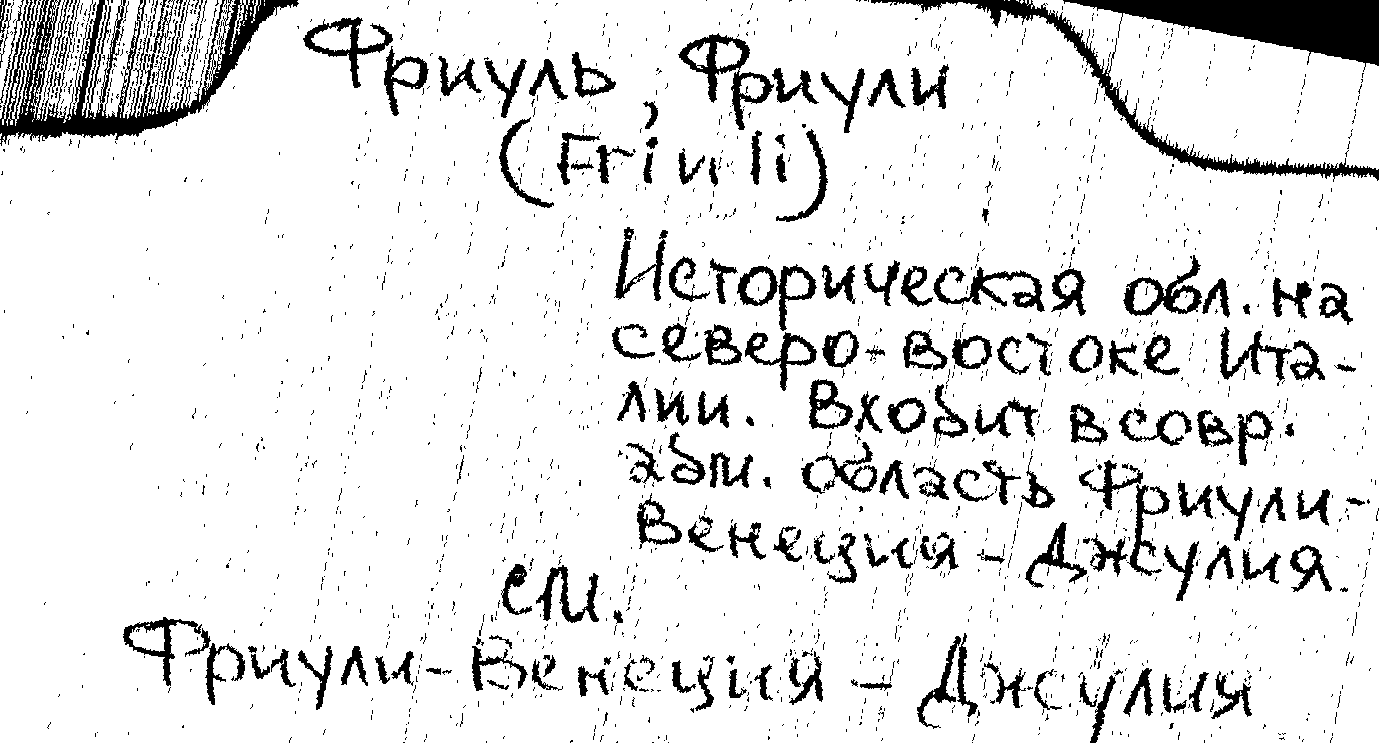 Фриуль, Фриули
(Friuli)
Историческая обл. на
северо-востоке Ита-
лии. Входит в совр.
адм. область Фриули-
Венеция - Джулия.
см.
Фриули-Венеция - Джулия